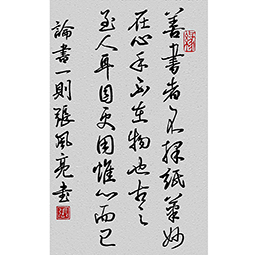 善書者不擇紙筆妙
在心手不在物也古之
至人耳目更用惟心而已
論書一則張風亮書